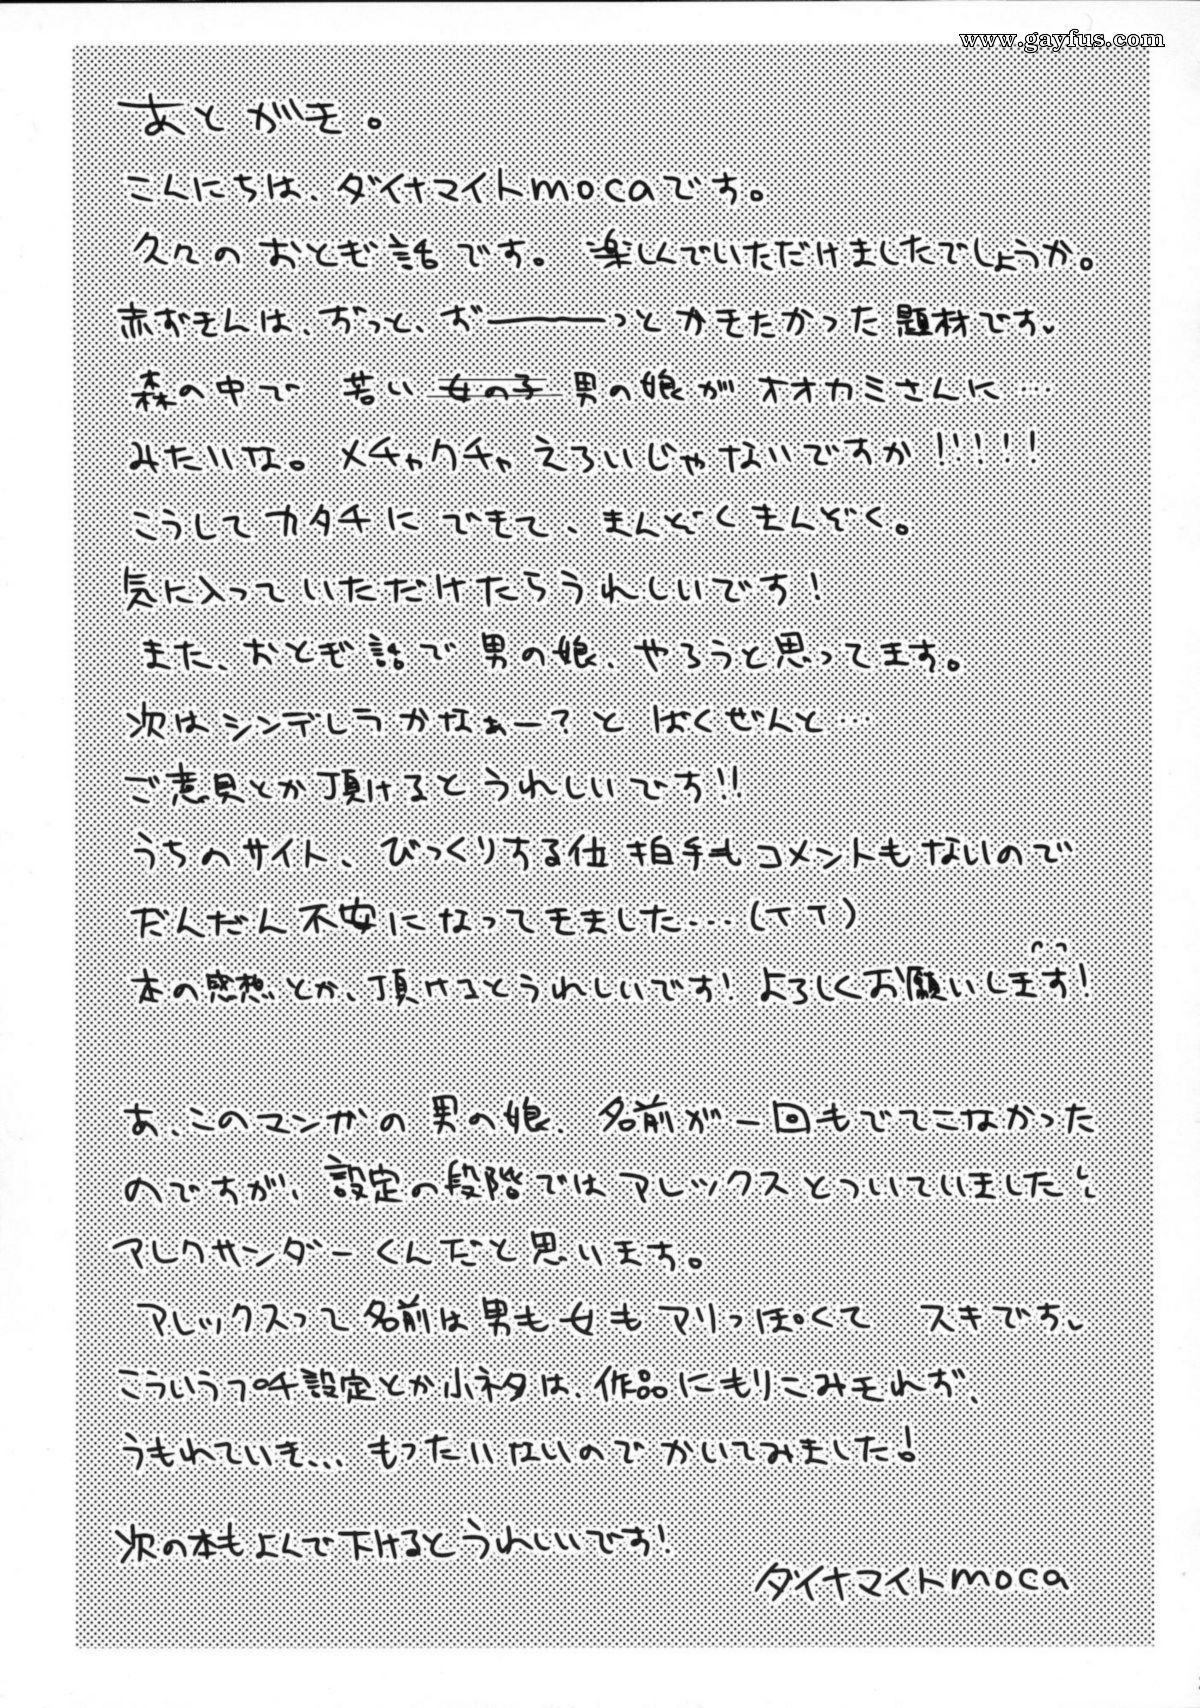 www.gayfus.com
あとがき。
こんにちは、ダイナマイトmocaです。
久々のおとぎ話です。楽しんでいただけましたでしょうか。
赤ずきんは、ずっと、ず———っとかきたかった題材です。
森の中で 若い 女の子 男の娘が オオカミさんに……
みたいな。メチャクチャえろいじゃないですか!!!!!
こうしてカタチにできて、まんぞくまんぞく。
気に入っていただけたらうれしいです!
また、おとぎ話で男の娘、やろうと思ってます。
次はシンデレラかなぁー?と ばくぜんと…
ご意見とか頂けるとうれしいです!!
うちのサイト、びっくりする位拍手もコメントもないので
だんだん不安になってきました…(TT)
本の感想とか、頂けるとうれしいです!よろしくお願いします!
あ、このマンガの男の娘、名前が一回もでてこなかった
のですが、設定の段階ではアレックスとついていました
アレクサンダーくんだと思います。
アレックスって名前は男も女もアリっぽくて スキです。
こういうプチ設定とか小ネタは、作品にもりこみきれず、
うもれていき...もったいないのでかいてみました!
次の本もよんで下けるとうれしいです!
ダイナマイトmoca